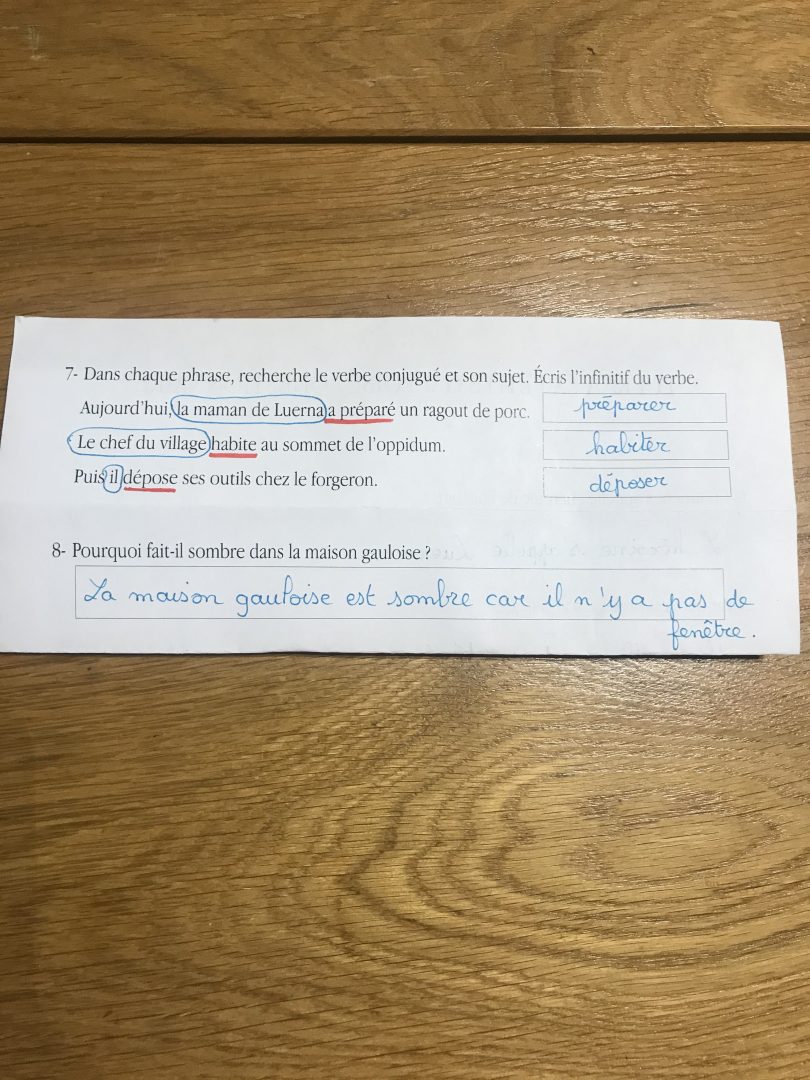 7- Dans chaque phrase, recherche le verbe conjugué et son sujet. Écris l'infinitif du verbe.
Aujourd'hui, la maman de Luerna a préparé un ragout de porc. préparer
Le chef du village habite au sommet de l'oppidum. habiter
Puis il dépose ses outils chez le forgeron. déposer
8- Pourquoi fait-il sombre dans la maison gauloise ?
La maison gauloise est sombre car il n'y a pas de
fenêtre.